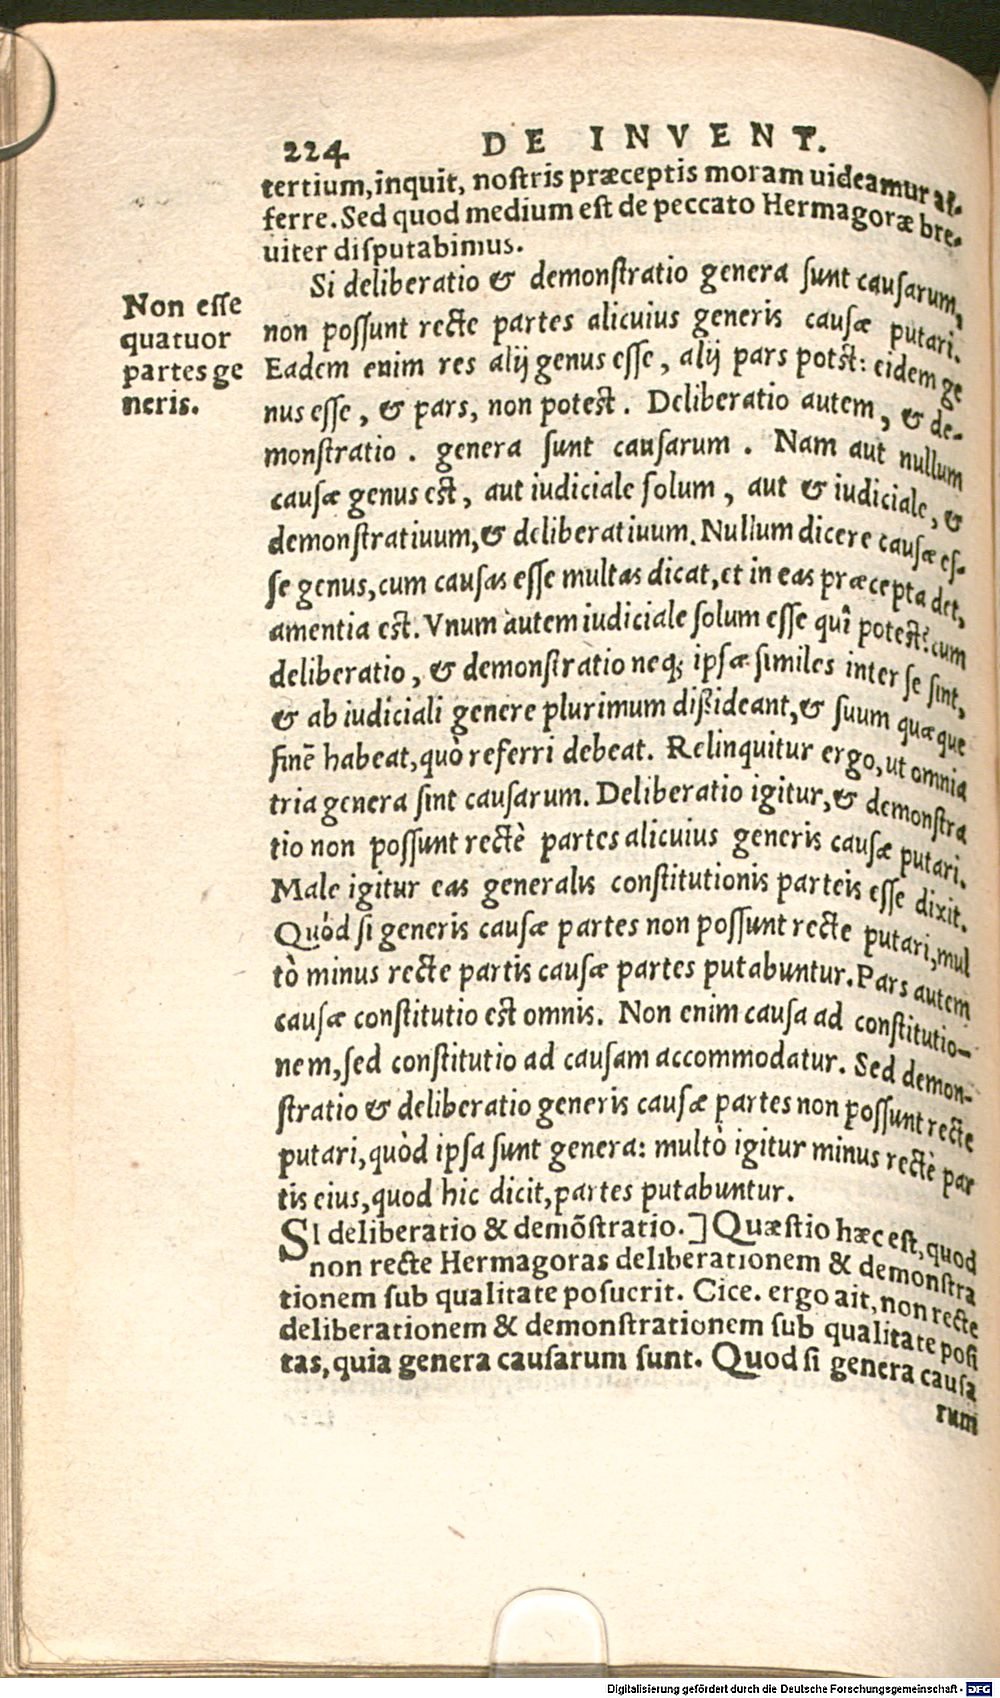 224 DE INVENT.
tertium,inquit, noſtris præceptis moram uideamur af-
ferre.Sed quod medium eſt de peccato Hermagoræ bre-
uiter diſputabimus.
Si deliberatio & demonſtratio genera ſunt cauſarum,
Non eſſe
quatuor
partes ge
neris.
non poſſunt recte partes alicuius generis cauſæ putari.
Eadem enim res alij genus eſſe, alij pars potſt: eidem ge
nus eſſe, & pars, non poteſt. Deliberatio autem, & de-
monſtratio. genera ſunt cauſarum. Nam aut nullum
cauſæ genus eſt, aut iudiciale ſolum, aut & iudiciale, &
demonſtratiuum,& deliberatiuum.Nullum dicere cauſæ eſ-
ſe genus,cum cauſas eſſe multas dicat,et in eas præcepta det,
amentia eſt.Vnum autem iudiciale ſolum eſſe quî poteſt?cum
deliberatio, & demonſtratio neq; ipſæ ſimiles inter ſe ſint,
& ab iudiciali genere plurimum diſsideant,& ſuum quæque
finẽ habeat,quò referri debeat. Relinquitur ergo,ut omnia
tria genera ſint cauſarum.Deliberatio igitur,& demonſtra
tio non poſſunt rectè partes alicuius generis cauſæ putari.
Male igitur eas generalis conſtitutionis parteis eſſe dixit.
Quòd ſi generis cauſæ partes non poſſunt recte putari,mul
tò minus recte partis cauſæ partes putabuntur.Pars autem
cauſæ conſtitutio eſt omnis. Non enim cauſa ad conſtitutio-
nem,ſed conſtitutio ad cauſam accommodatur. Sed demon-
ſtratio & deliberatio generis cauſæ partes non poſſunt recte
putari,quòd ipſa ſunt genera: multò igitur minus rectè par
tis eius,quod hic dicit,partes putabuntur.
SI deliberatio & demõſtratio.] Quæſtio hæc eſt,quod
non recte Hermagoras deliberationem & demonſtra
tionem ſub qualitate poſuerit. Cice. ergo ait,non recte
deliberationem & demonſtrationem ſub qualitate poſi
tas,quia genera cauſarum ſunt. Quod ſi genera cauſa
rum
Digitalisierung gefördert durch die Deutsche Forschungsgemeinschaft - DFG